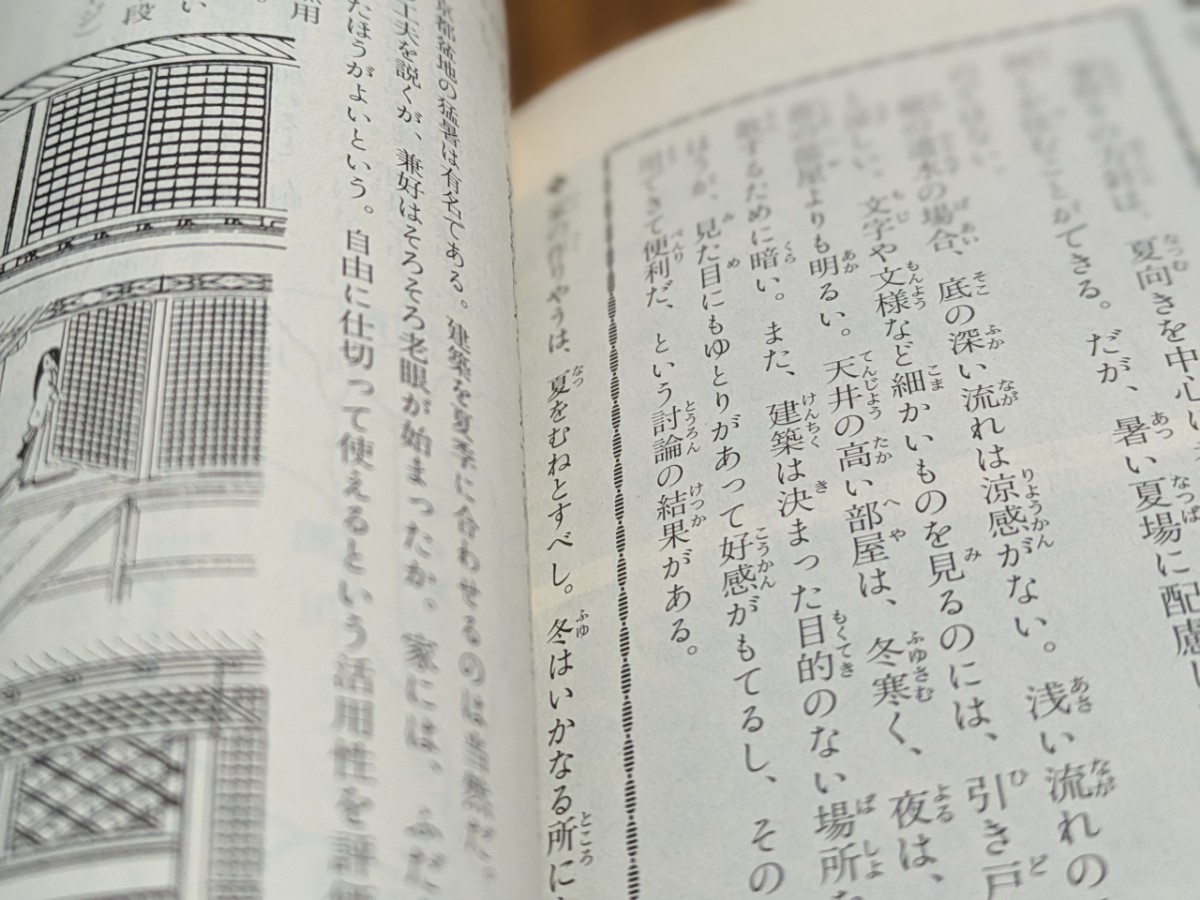 夏向きを中心に
ことができる。だが、暑い夏場に配慮し
のではない。
水の場合、底の深い流れは涼感がない。浅い流れの
しい。文字や文様など細かいものを見るのには、引き戸
部屋よりも明るい。天井の高い部屋は、冬寒く、夜は、
するために暗い。また、建築は決まった目的のない場所を
ほうが、見た目にもゆとりがあって好感がもてるし、その
用できて便利だ、という討論の結果がある。
家の作りやうは、夏をむねとすべし。冬はいかなる所に
京都盆地の猛暑は有名である。建築を夏季に合わせるのは当然だ。
工夫を説くが、兼好はそろそろ老眼が始まったか。家には、ふだ
たほうがよいという。自由に仕切って使えるという活用性を評価
用
段
い